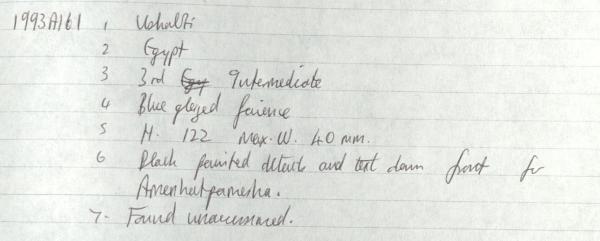 1993A161 1 Ushabti
2 Egypt
3 3rd Intermediate
4 Blue glazed faience
5 H. 122 Max. W. 40 mm.
6 Black painted details and text down front for
Amenhatpamesha.
7. Found unaccessioned.